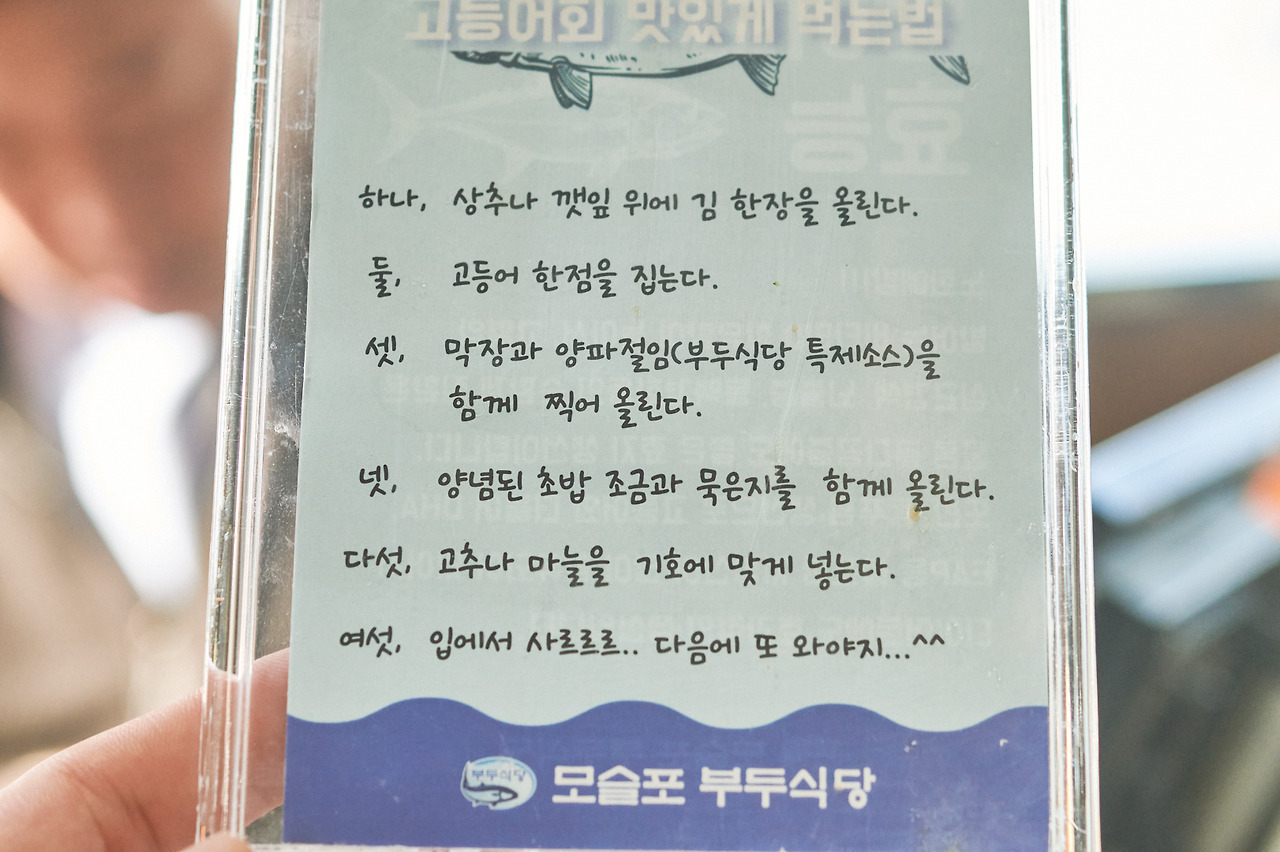 고등어회 맛있게 먹는법
하나, 상추나 깻잎 위에 김 한장을 올린다.
둘, 고등어 한점을 집는다.
셋, 막장과 양파절임(부두식당 특제소스)을
함께 찍어 올린다.
넷, 양념된 초밥 조금과 묵은지를 함께 올린다.
다섯, 고추나 마늘을 기호에 맞게 넣는다.
여섯, 입에서 사르르르.. 다음에 또 와야지...^^
부두식당
모슬포 부두식당